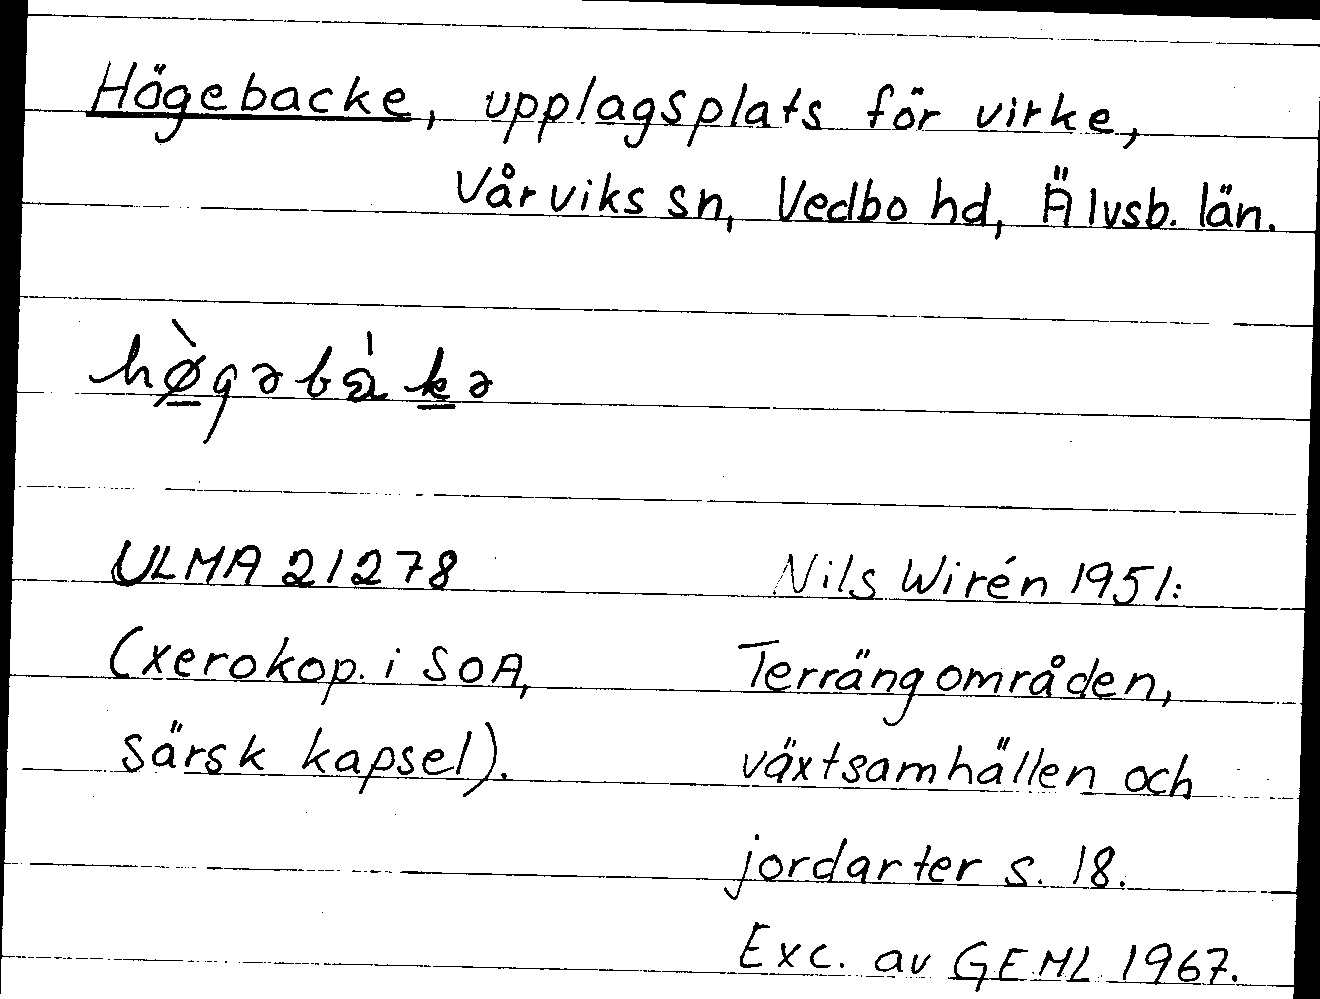 Högebacke, upplagsplats för virke,
Vårviks sn, Vedbo hd, Älvsb. län.
hø̀gəbàkə
ULMA 21278
(xerokop. i SOA,
särsk kapsel).
Nils Wirén 1951:
Terrängområden,
växtsamhällen och
jordarter s. 18.
Exc. av GEML 1967.